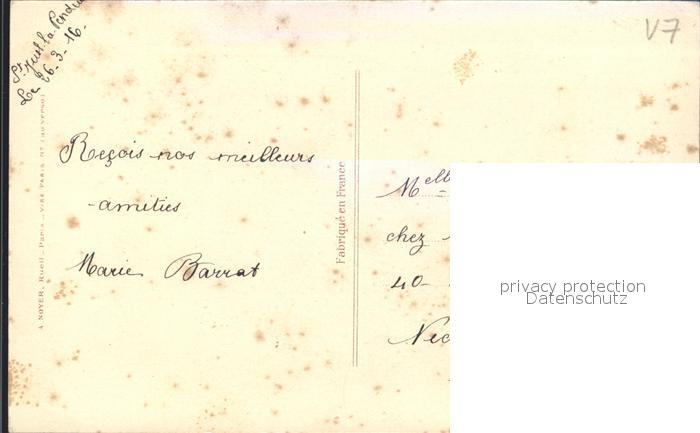 St Just-la-Pendue
Le 26-3-16-
V7
Reçois nos meilleurs
-amitiés
Marie Barrat
A. NOYER, RUEIL - PARIS - VISÉ PARIS No (AU VERSO)
Fabriqué en France
Melle
chez
40-
privacy protection
Datenschutz